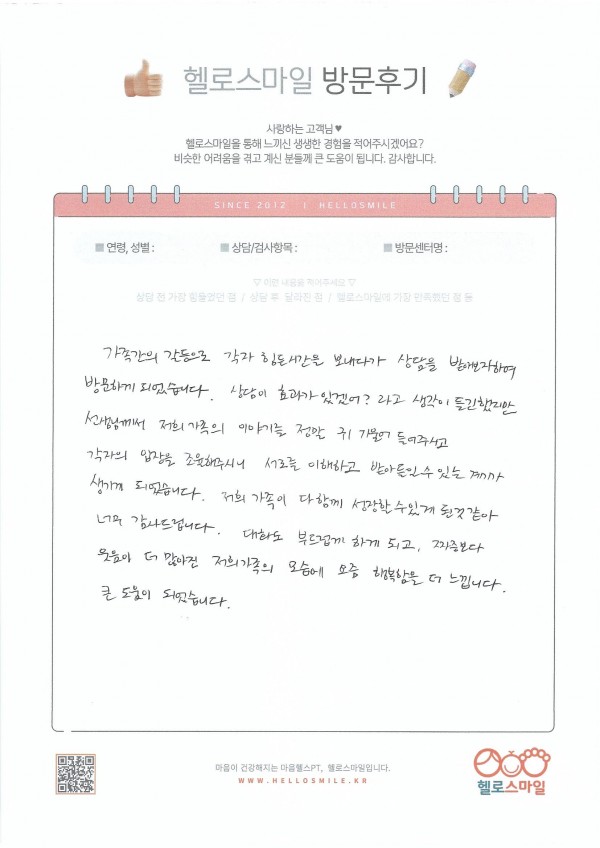 헬로스마일 방문후기
사랑하는 고객님 ♥
헬로스마일을 통해 느끼신 생생한 경험을 적어주시겠어요?
비슷한 어려움을 겪고 계신 분들께 큰 도움이 됩니다. 감사합니다.
SINCE 2012 | HELLOSMILE
■ 연령, 성별 : ■ 상담/검사항목 : ■ 방문센터명 :
▽ 이런 내용을 적어주세요 ▽
상담 전 가장 힘들었던 점 / 상담 후 달라진 점 / 헬로스마일에 가장 만족했던 점 등
가족간의 갈등으로 각자 힘든시간을 보내다가 상담을 받아보자하여
방문하게 되었습니다. 상담이 효과가 있겠어? 라고 생각이 들긴했지만
선생님께서 저희 가족의 이야기를 정말 귀 기울여 들어주시고
각자의 입장을 조율해주시니 서로를 이해하고 받아들일 수 있는 계기가
생기게 되었습니다. 저희 가족이 다함께 성장할 수 있게 된것 같아
너무 감사드립니다. 대화도 부드럽게 하게 되고, 짜증보다
웃음이 더 많아진 저희가족의 모습에 요즘 행복함을 더 느낍니다.
큰 도움이 되었습니다.
마음이 건강해지는 마음헬스PT, 헬로스마일입니다.
WWW.HELLOSMILE.KR
헬로스마일